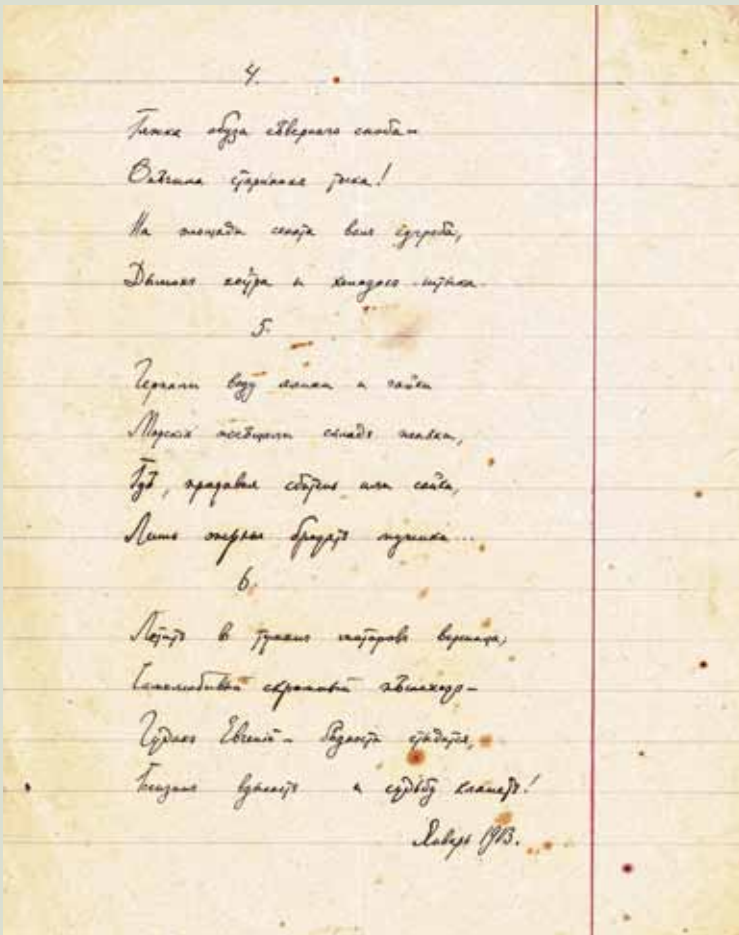 4.
Тяжка обуза сѣвернаго сноба –
Онѣгина старинная тоска!
На площади сената валъ сугроба,
Дымокъ костра и холодокъ штыка.
5.
Черпали воду ялики и чайки
Морскія посѣщали складъ пеньки,
Гдѣ, продавая сбитень или сайки,
Лишь оперные бродятъ мужики...
6.
Летитъ в туманъ моторовъ вереница;
Самолюбивый скромный пѣшеходъ –
Чудакъ Евгеній – бѣдности стыдится,
Бензинъ вдыхаетъ и судьбу клянетъ!
Январь 1913.